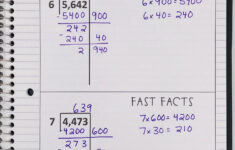 6 × 900 = 5400
6 × 40 = 240
6 5,642
-5400 900
242
-240 40
2 940
639
FAST FACTS
7 4,473
4200 600
273
7×600= 4200
7×30 = 210